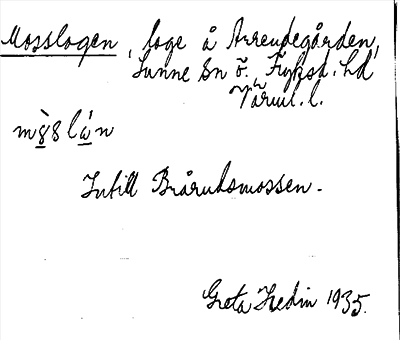 Mosslogen, loge å Arrendegården,
Sunne sn Ö. Fryksd. hd
Värml. l.
Intill Brårudsmossen.
Greta Hedin 1935.